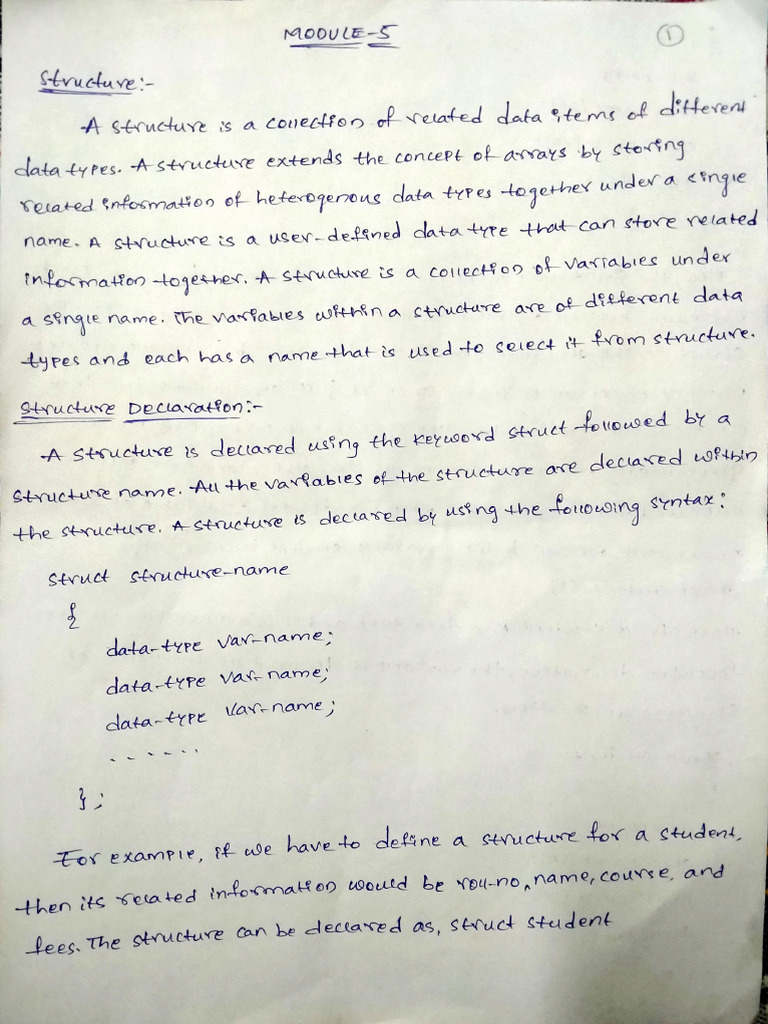 MODULE-5
1
Structure:-
A structure is a collection of related data items of different
data types. A structure extends the concept of arrays by storing
related information of heterogenous data types together under a single
name. A structure is a user-defined data type that can store related
information together. A structure is a collection of variables under
a single name. The variables within a structure are of different data
types and each has a name that is used to select it from structure.
Structure Declaration:-
A structure is declared using the keyword struct followed by a
structure name. All the variables of the structure are declared within
the structure. A structure is declared by using the following syntax:
struct structure-name
{
data-type var-name;
data-type var-name;
data-type var-name;
.......
};
For example, if we have to define a structure for a student,
then its related information would be roll-no, name, course, and
fees. The structure can be declared as, struct student